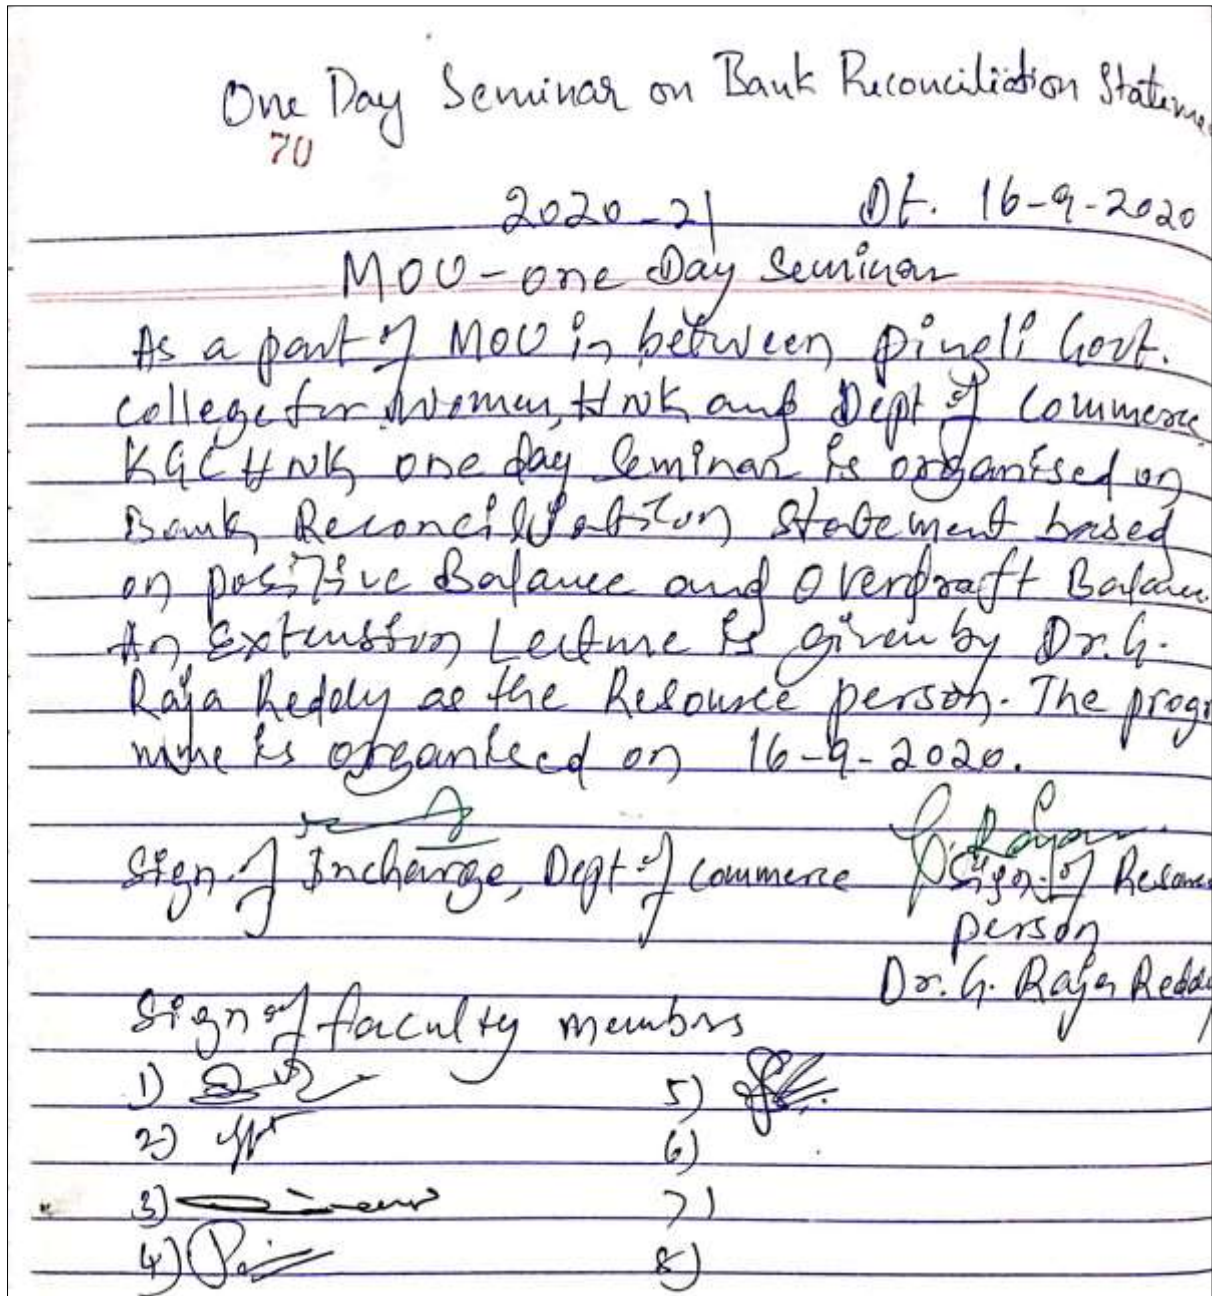 One Day Seminar on Bank Reconciliation Stateme
70
2020-21 Dt. 16-9-2020
MOU-one Day Seminar
As a part of MOU in between pingli Govt.
college for Women, HNK and Dept of Commerce
KGC HNK one day Seminar is organised on
Bank Reconciliation Statement based
on positive Balance and Overdraft Balance.
An Extension Lecture is given by Dr. G.
Raja Reddy as the Resource person. The progr
mme is organised on 16-9-2020.
Sign of Incharge, Dept of commerce Sign of Resource
person
Dr. G. Raja Reddy
Sign of faculty members
1) 5)
2) 6)
3) 7)
4) 8)